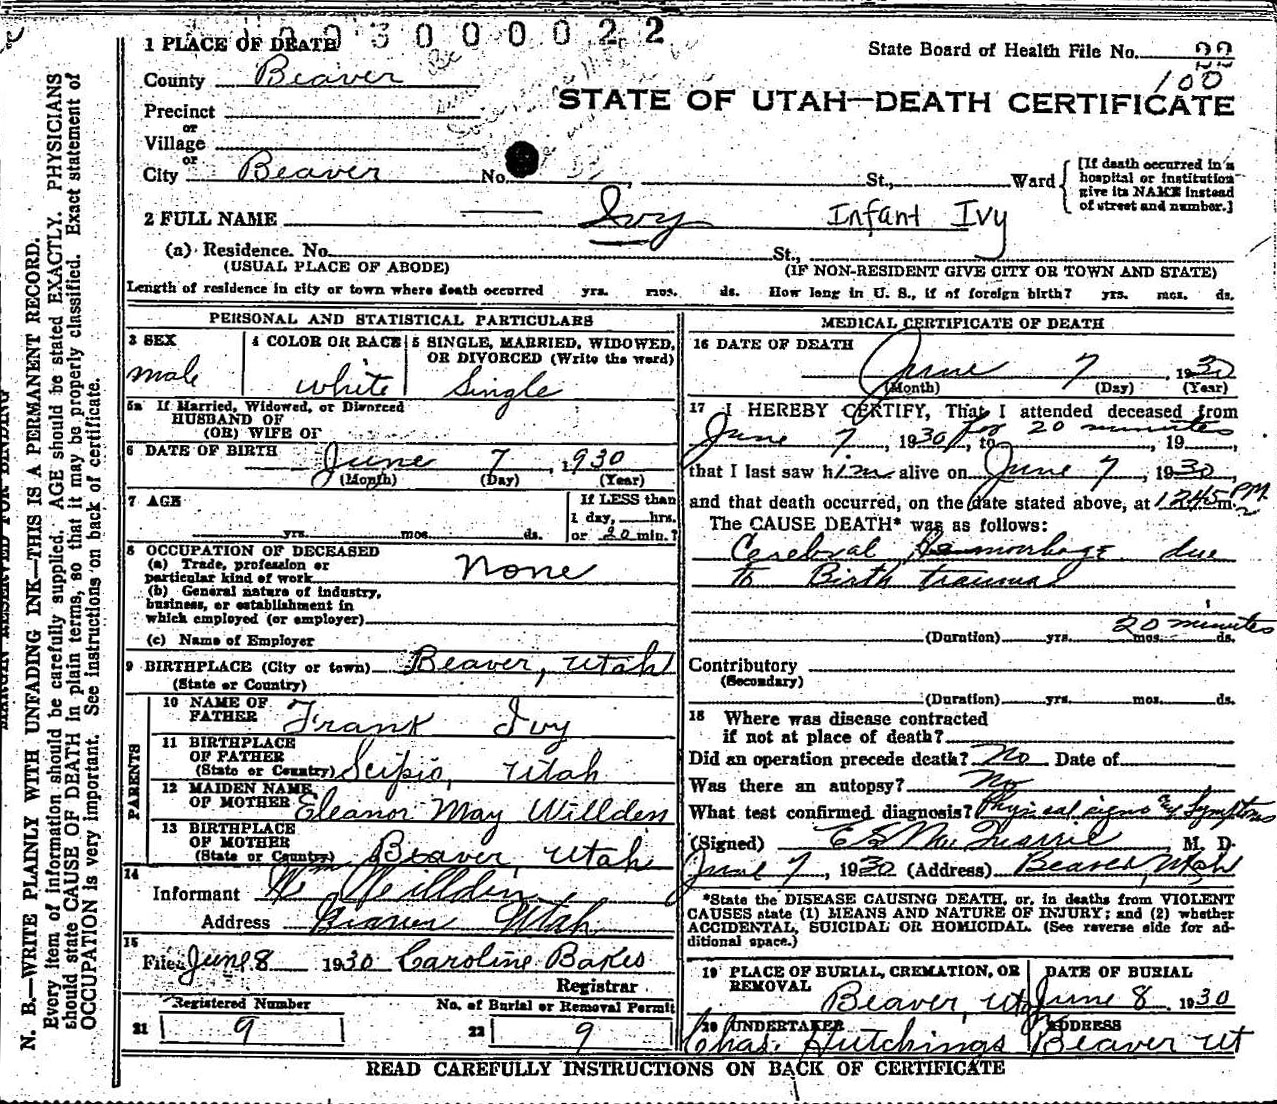 1930000022
1 PLACE OF DEATH
State Board of Health File No. 22
100
County Beaver
STATE OF UTAH—DEATH CERTIFICATE
Precinct
or
Village
or
City Beaver No. St., Ward
[If death occurred in a hospital or institution give its NAME instead of street and number.]
2 FULL NAME Ivy Infant Ivy
(a) Residence. No. St.,
(USUAL PLACE OF ABODE) (IF NON-RESIDENT GIVE CITY OR TOWN AND STATE)
Length of residence in city or town where death occurred yrs. mos. ds. How long in U. S., if of foreign birth? yrs. mos. ds.
PERSONAL AND STATISTICAL PARTICULARS
3 SEX 4 COLOR OR RACE 5 SINGLE, MARRIED, WIDOWED,
OR DIVORCED (Write the word)
male white Single
5a If Married, Widowed, or Divorced
HUSBAND OF
(OR) WIFE OF
6 DATE OF BIRTH June 7, 1930
(Month) (Day) (Year)
7 AGE If LESS than
1 day, hrs.
yrs. mos. ds. or 20 min.?
8 OCCUPATION OF DECEASED
(a) Trade, profession or
particular kind of work None
(b) General nature of industry,
business, or establishment in
which employed (or employer)
(c) Name of Employer
9 BIRTHPLACE (City or town) Beaver, Utah
(State or Country)
PARENTS
10 NAME OF
FATHER Frank Ivy
11 BIRTHPLACE
OF FATHER
(State or Country) Scipio, Utah
12 MAIDEN NAME
OF MOTHER Eleanor May Willden
13 BIRTHPLACE
OF MOTHER
(State or Country) Beaver, Utah
14
Informant Wm Willden
Address Beaver Utah
15
Filed June 8 1930 Caroline Bakes
Registrar
Registered Number No. of Burial or Removal Permit
21 9 22 9
MEDICAL CERTIFICATE OF DEATH
16 DATE OF DEATH
June 7, 1930
(Month) (Day) (Year)
17 I HEREBY CERTIFY, That I attended deceased from
June 7, 1930, to for 20 minutes, 19
that I last saw him alive on June 7, 1930
and that death occurred, on the date stated above, at 12:45 P.M. m.
The CAUSE DEATH* was as follows:
Cerebral Hemorrhage due
to Birth trauma
20 minutes
(Duration) yrs. mos. ds.
Contributory
(Secondary)
(Duration) yrs. mos. ds.
18 Where was disease contracted
if not at place of death?
Did an operation precede death? No Date of
Was there an autopsy? No
What test confirmed diagnosis? Physical signs and Symptoms
(Signed) M. D.
June 7, 1930 (Address) Beaver, Utah
*State the DISEASE CAUSING DEATH, or, in deaths from VIOLENT
CAUSES state (1) MEANS AND NATURE OF INJURY; and (2) whether
ACCIDENTAL, SUICIDAL OR HOMICIDAL. (See reverse side for ad-
ditional space.)
19 PLACE OF BURIAL, CREMATION, OR
REMOVAL DATE OF BURIAL
Beaver, Ut June 8 1930
20 UNDERTAKER ADDRESS
Chas. Hutchings Beaver Ut
READ CAREFULLY INSTRUCTIONS ON BACK OF CERTIFICATE
MARGIN RESERVED FOR BINDING
N. B.—WRITE PLAINLY WITH UNFADING INK—THIS IS A PERMANENT RECORD.
Every item of information should be carefully supplied. AGE should be stated EXACTLY. PHYSICIANS
should state CAUSE OF DEATH in plain terms, so that it may be properly classified. Exact statement of
OCCUPATION is very important. See instructions on back of certificate.